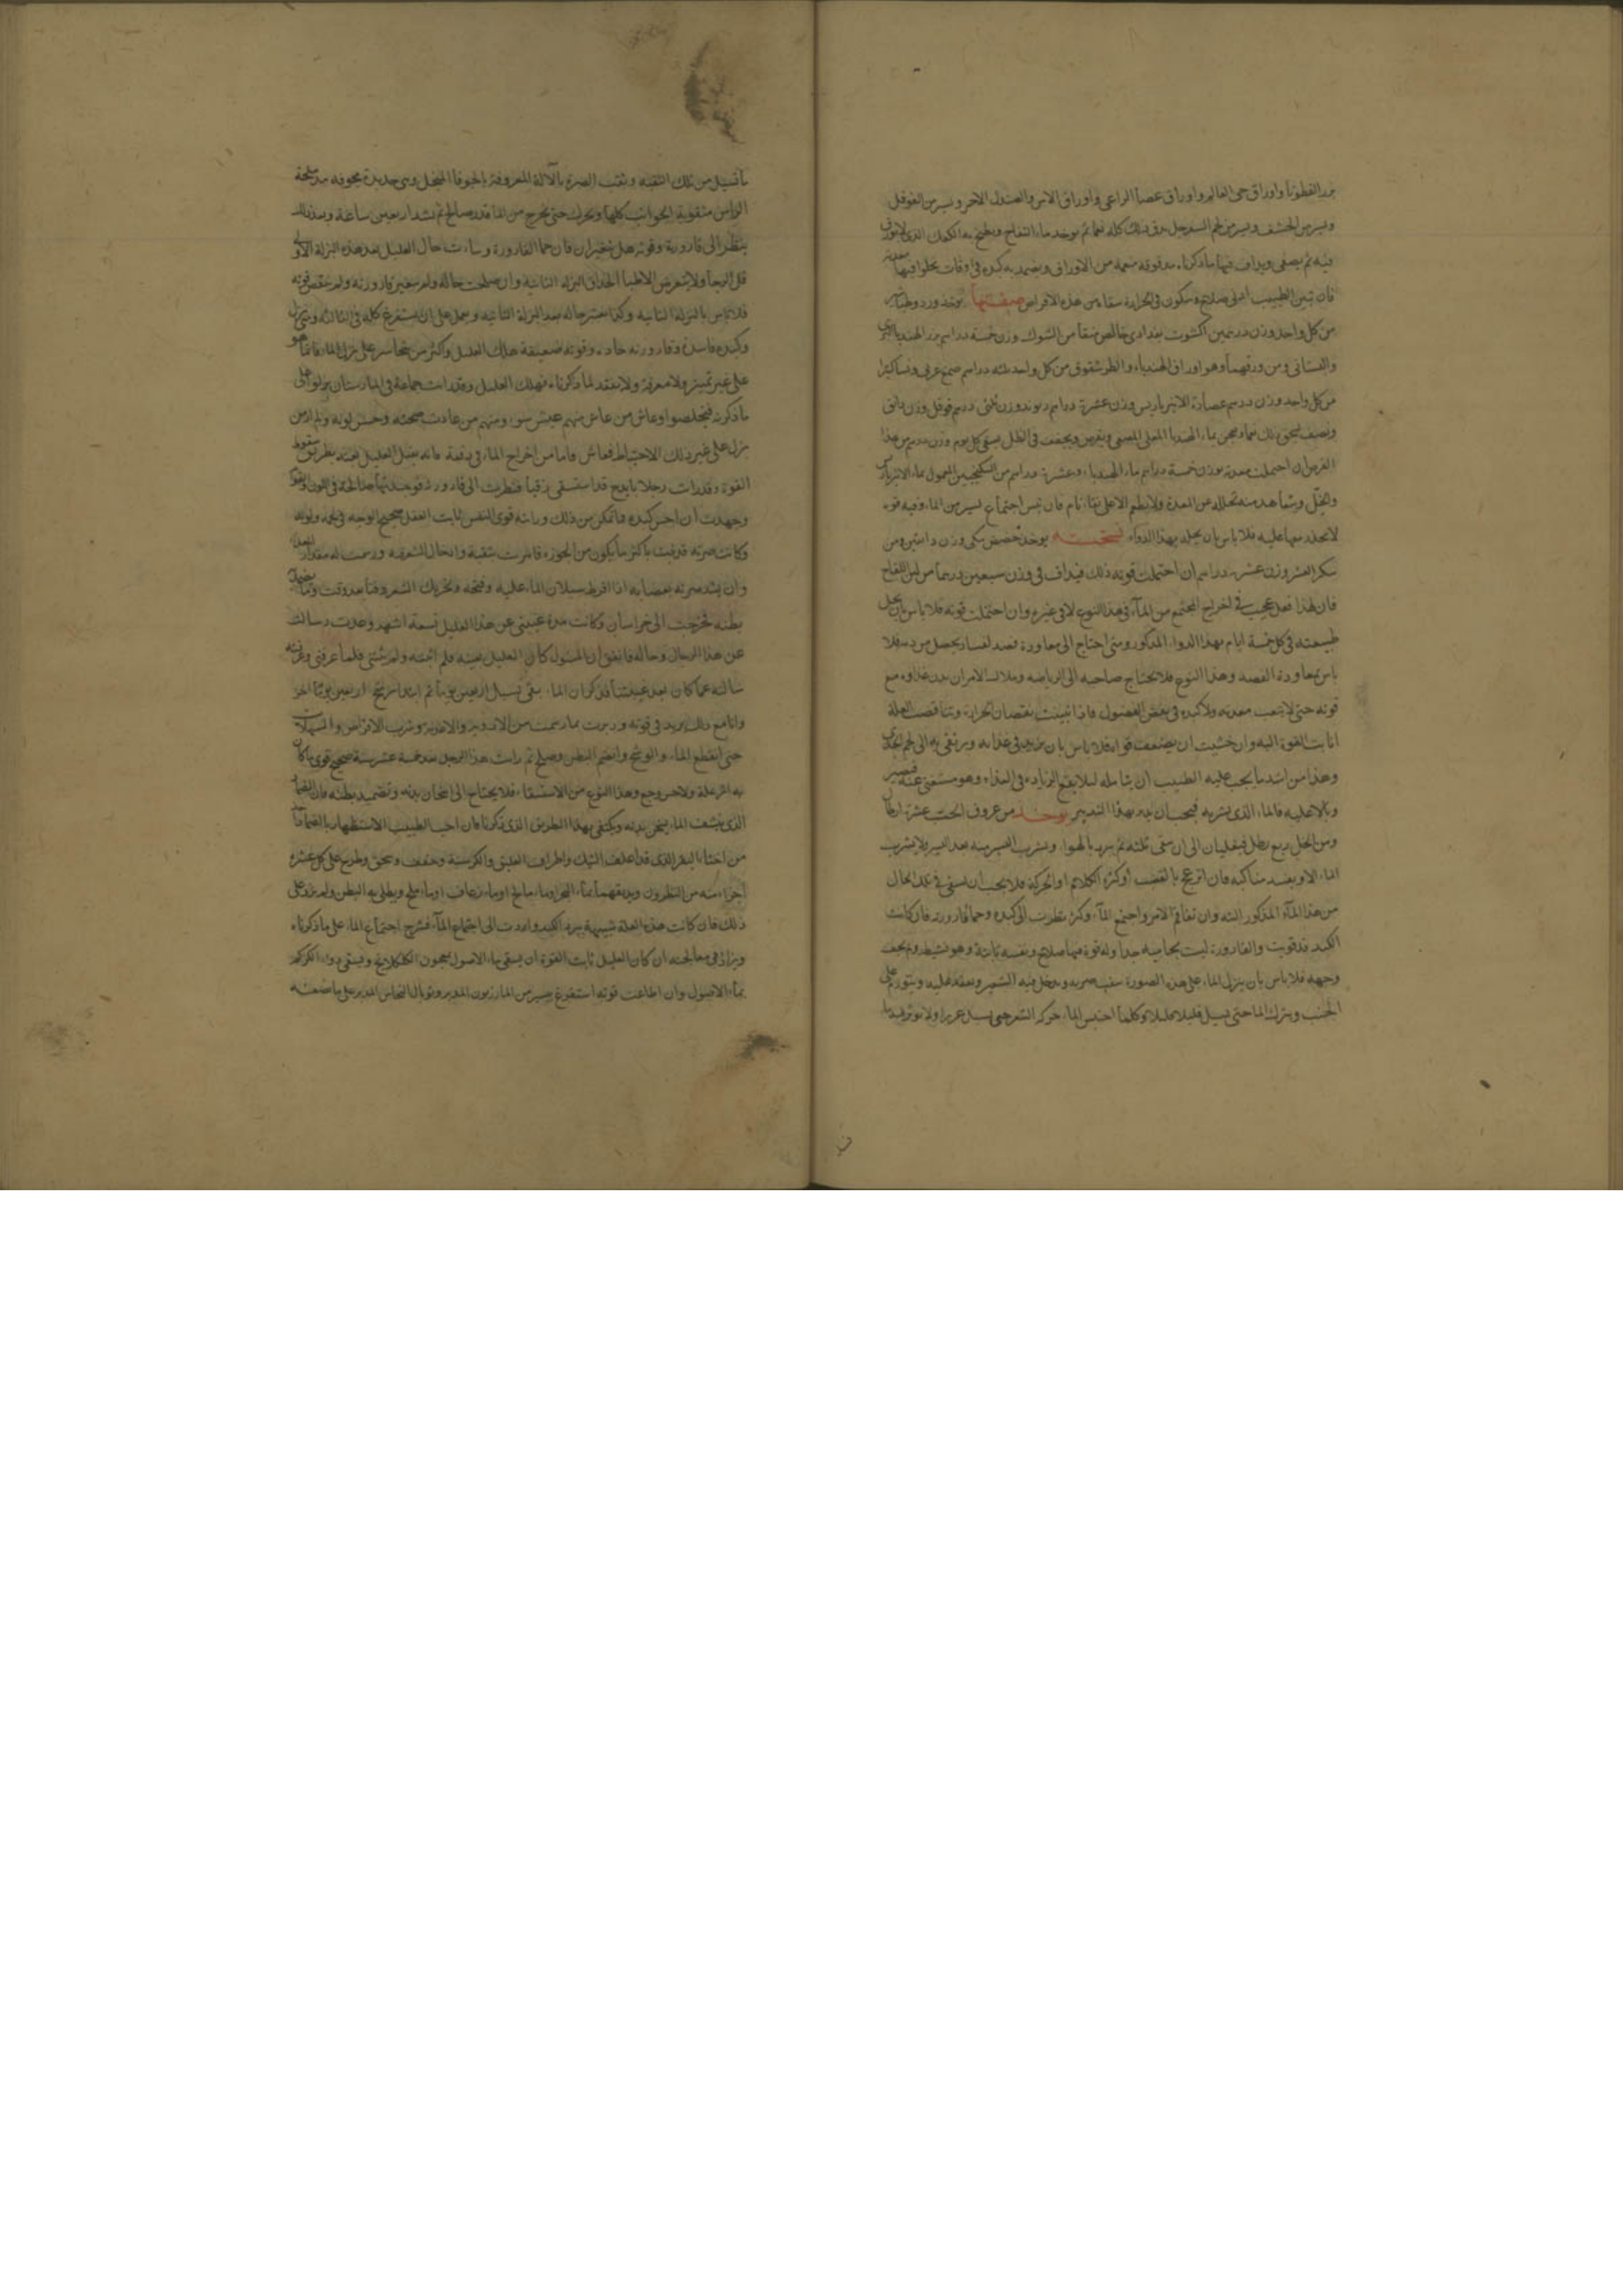 بزر القطونا واوراق حى العالم واوراق عصا الراعى واوراق الاس والصندل الاحمر ويسير من الفوفل
ويسير من الخشف ويسير من لحم السفرجل يدق ذلك كله نعما ثم يوخذ ماء التفاح ويطبخ به الكعك الذى
فيه ثم يصفى ويداف فيها ما ذكرناه مدقوقه منعمه من الاوراق ويضمد به كبده فى اوقات يخلوا فيها معدته
فان تبين الطبيب ادنى صلاح وسكون فى الحرارة سقاه من هذه الاقراص صفتها يوخذ ورد وطباشير
من كل واحد وزن درهمين اكشوت بغدادى خالص منقا من الشوك وزن خمسة دراهم بزر الهندبا البرى
والبستانى ومن ورقهما وهو اوراق الهندباء والطرشقوق من كل واحد ثلثه دراهم صمغ عربى ونشا كثيرا
من كل واحد وزن درهم عصارة الانبرباريس وزن عشرة دراهم ريوند وزن ثلثى درهم فوفل وزن دانق
ونصف يسحق ذلك نعما ويعجن بماء الهندبا المغلى المصفى ويقرص ويجفف فى الظل يسقى كل يوم وزن درهم من هذا
القرص ان احتملت معدته بوزن خمسة دراهم ماء الهندباء وعشرة دراهم من السكنجبين المعمول بماء الانبرباريس
والخل وشاهد منه تحلله عن المعدة ولا يطعم الا على نقاء تام فان حس اجتماع يسير من الماء وفيه قوه
لا يحذر معها عليه فلا باس بان يحله بهذا الدواء نسخته يوخذ حضض مكى وزن دانقين ومن
سكر العشر وزن عشرة دراهم ان احتملت قوته ذلك فيداف فى وزن سبعين درهما من لبن اللقاح
فان لهذا فعل عجيب فى اخراج المجتمع من الماء فى هذا النوع لا فى غيره وان احتملت قوته فلا باس بان يحل
طبيعته فى كل خمسة ايام بهذا الدواء المذكور ومتى احتاج الى معاودة فصد لفساد يحصل من دمه فلا
باس بمعاودة الفصد وهذا النوع فلا يحتاج صاحبه الى الرياضه وملاك الامر ان يدبر غذاوه مع
قوته حتى لا يتعب معدته ولا كبده فى بعض الفصول فاذا تبينت نقصان الحرارة وتناقصت العلة
اثابت القوة اليه وان خشيت ان يضعف قواه فلا باس بان يزيد فى غذايه ويرتقى به الى لحم الجدى
وهذا من اشد ما يجب عليه الطبيب ان يتامله ليلا يقع الزياده فى الغذاء وهو مستغنى عنه فيصير
وبالا عليه فالماء الذى يشربه فيجب ان يدبر بهذا التدبير يوخذ من عروق الخس عشرة ارطال
ومن الخل ربع رطل فيغليان الى ان يبقى ثلثه ثم يبرد بالهواء ويشرب اليسير منه بعد اليسير ولا يشرب
الماء الا وبعضد مناكبه فان انزعج بالغضب او كثره الكلام او الحركة فلا يجب ان يسقى فى تلك الحال
من هذا الماء المذكور البته وان تفاقم الامر واجتمع الماء وكثر نظرت الى كبده وحما قارورته فان كانت
الكبد قد قويت والقارورة ليست بحاميه جدا وله قوة فيها صلاح ونفسه ثابتة وهو نشيط ولم يجف
وجهه فلا باس بان ينزل الماء على هذه الصورة يثقب صرته ويدخل فيه الشعير ونعقد عليه ويتورم على
الجنب ويترك الماء حتى يسيل قليلا قليلا وكلما احتبس الماء حركه الشعر حتى يسيل
ما تسيل من تلك الثقبه وتثقب الصرة بالآلة المعروفة وهى حديدة مجوفه
الراس مثقوبة الجوانب كلها ويحرك حتى يخرج من الماء قدر صالح ثم يشد اربعين ساعة وبعد ذلك
ينظر الى قارورة وقوته هل تتغيران فان حما القارورة وساءت حال العليل بعد هذه النزلة الاولى
قل الرجا ولا يتعرض الاطبا الحذاق النزلة الثانية وان صلحت حاله ولم يتغير قارورته ولم ينقص قوته
فلا باس بالنزلة الثانيه وكذا يعتبر حاله بعد النزلة الثانيه ويعمل على ان يستفرغ كله فى الثالثه ومتى نزل
وكبده فاسدة وقارورته حاده وقوته ضعيفة هلك العليل واكثر من يتجاسر على نزل الماء فانما هو
على غير تمييز ولا معرفة ولا يتفقد لما ذكرناه فهلك العليل وقد رايت جماعة فى المارستان بزلوا على
ما ذكرته فتخلصوا وعاش من عاش منهم عيش سوء ومنهم من عادت صحته وحسن لونه ولم ار من
نزل على غير ذلك الاحتياط فعاش فاما من اخراج الماء فى دفعة فانه يقتل العليل بغته بطريق سقوط
القوة وقد رايت رجلا قد استسقى زقيا فنظرت الى قارورته فوجدتها صالحة فى اللون والقوام
وجهدت ان اجس كبده فما تمكن من ذلك ورايته قوى النفس ثابت العقل صحيح الوجه فى لحمه ولونه
وكانت صرته قد نبت باكثر ما يكون من الجوزه فامرت بثقبه وادخال الشعر فيه ورسمت له مقدار الغذاء
وان يشد صرته بعصابه اذا افرط سيلان الماء عليه وفتحه وتحريك الشعر وقتا بعد وقت وبما يضمد
بطنه فخرجت الى خراسان وكانت مدة غيبتى عن هذا العليل تسعة اشهر وعدت وسالت
عن هذا الرجال وحاله فاتفق ان المسئول كان العليل بعينه فلم اثبته ولم يثبتنى فلما عرفنى وعرفته
سالته عما كان بعد غيبتنا فذكر ان الماء بقى يسيل اربعين يوما ثم ابتدا يرشح اربعين يوما اخر
وانا مع ذلك ازيد فى قوته ودبرت بما رسمت من الادوية والاغذية وشرب الاقراص والمسهلات
حتى انقطع الماء والوشح وانضم البطن وصلح ثم رايت هذا الرجل بعد خمسة عشر سنة صحيح قوى ما كان
به اثر علة ولا حس وجع وهذا النوع من الاستسقاء فلا يحتاج الى اسخان بدنه وتضميد بطنه فان الضماد
الذى ينشف الماء يسخن بدنه ويكتفى بهذا الطريق الذى ذكرنا فان احب الطبيب الاستظهار بالضماد
من اخثاء البقر الذى قد اعتلف الشيك واطراف العليق والكرسنة وجفف وسحق وطرح على كل عشره
اجزاء منه من النطرون ويدقهما بماء البحر او ماء مالح او ماء زعاف او ماء ملح ويطلى به البطن ولم يزد على
ذلك فان كانت هذه العلة شبيهة ببرد الكبد وادت الى اجتماع الماء فشرح اجتماع الماء على ما ذكرناه
ويزاد فى معالجته ان كان العليل ثابت القوة ان يسقى ماء الاصول بمعجون الكلكلانج ويسقى دواء الكركم
بماء الاصول وان اطاعت قوته استفرغ بيسير من المازريون المدبر وتوبال النحاس المدبر على ما ضمنته